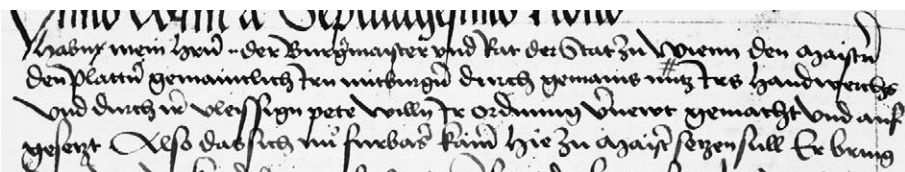 Anno domini a Septuagesimo Nono
Habent mein herrn der Burgermaister vnd Rat der Stat zu Wienn den maistern
den plattnern gemainclich irn mitburgern durch gemains nutz irs handwerchs
vnd durch ir vleissigen pete willn ir ordnung vernewt gemacht vnd auf
gesetzt Also das sich nu furbas kainer hie zu maister setzen sull Er bring